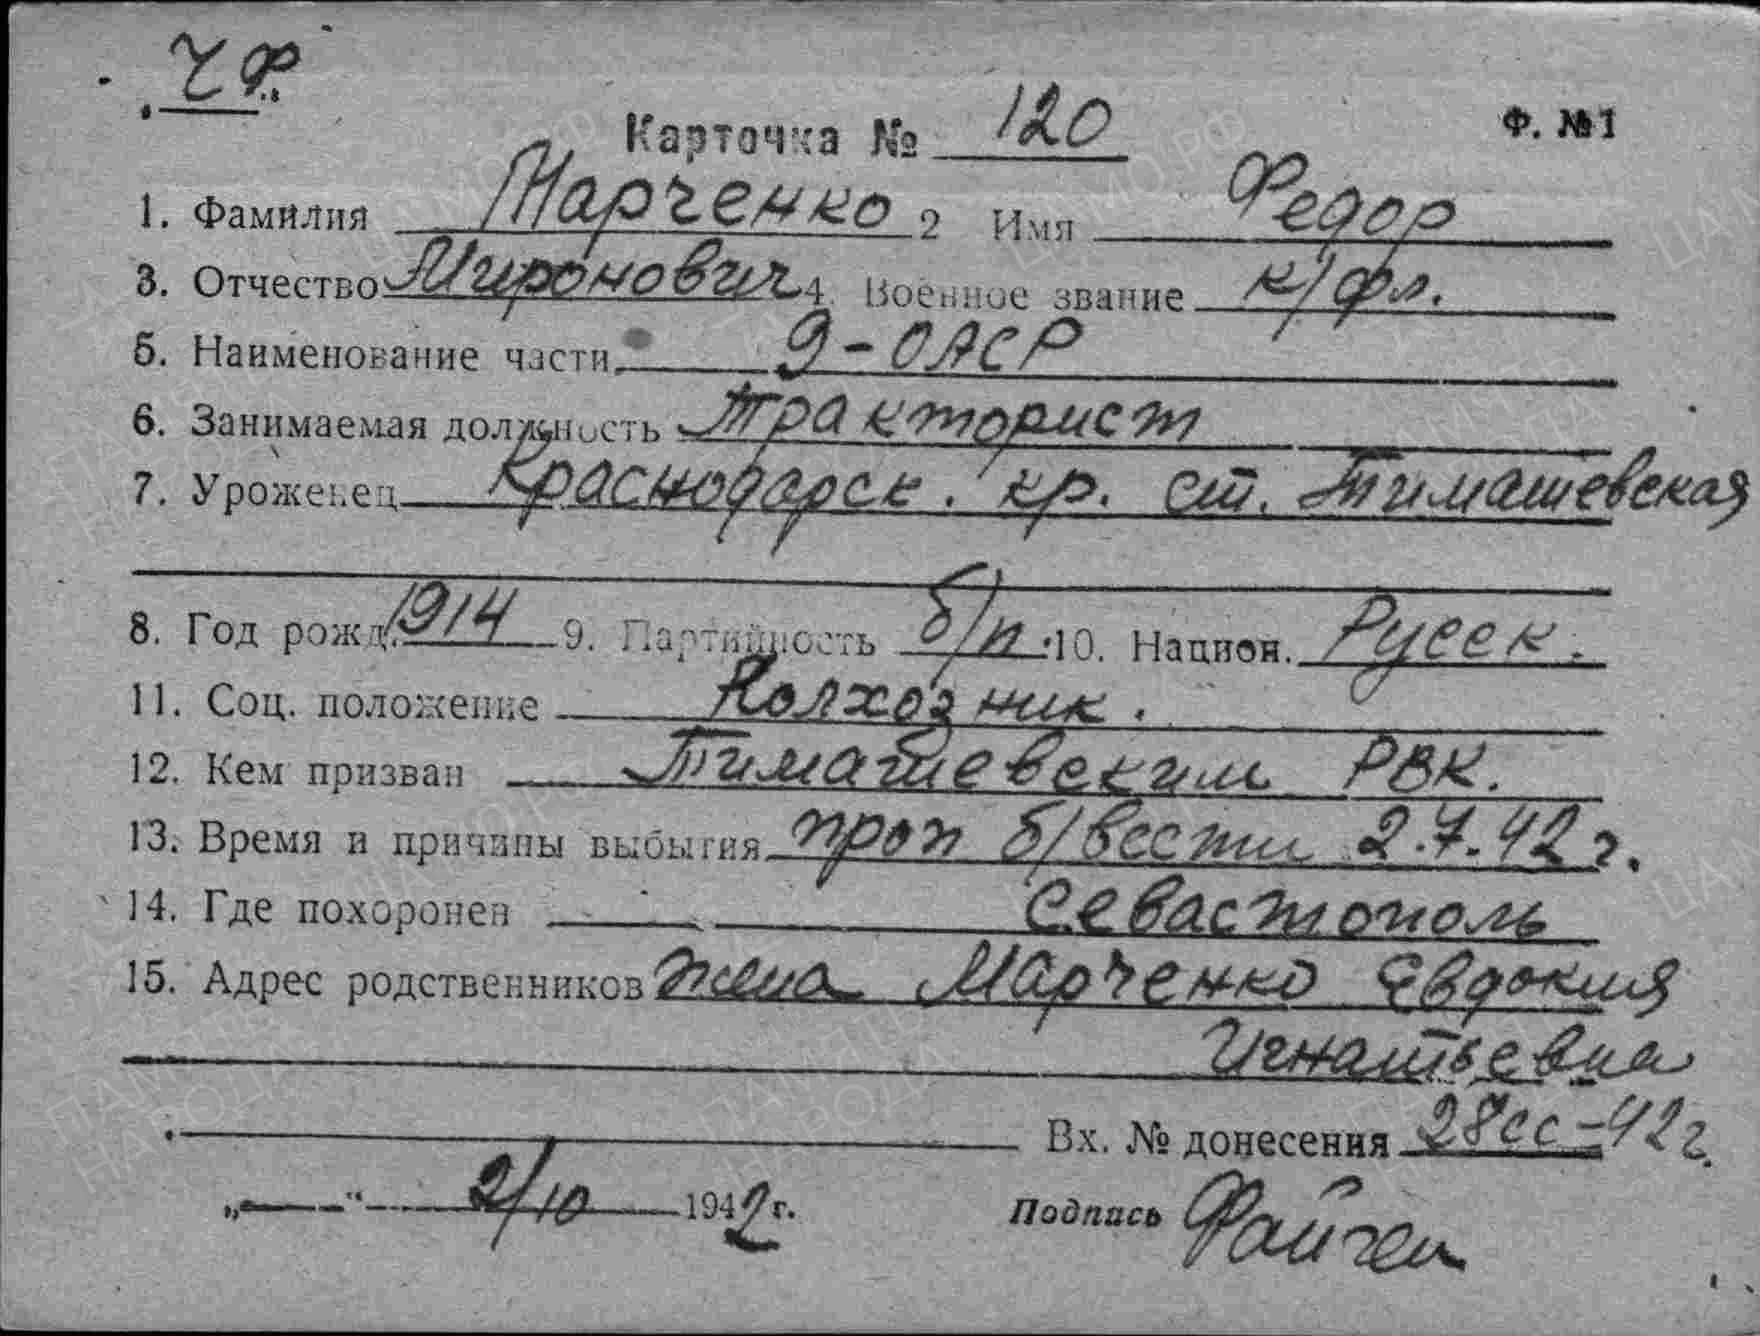 ЧФ.
Карточка № 120 Ф. №1
1. Фамилия Марченко 2 Имя Федор
3. Отчество Миронович 4. Военное звание к/фл.
5. Наименование части 9-ОАСР
6. Занимаемая должность Тракторист
7. Уроженец Краснодарск. кр. ст. Тимашевская
8. Год рожд. 1914 9. Партийность б/п. 10. Национ. Русск.
11. Соц. положение Колхозник.
12. Кем призван Тимашевским РВК.
13. Время и причины выбытия проп б/вести 2.7.42 г.
14. Где похоронен Севастополь
15. Адрес родственников Жена Марченко Евдокия
Игнатьевна
Вх. № донесения 28сс-42 г.
„ " 2/10 1942 г. Подпись